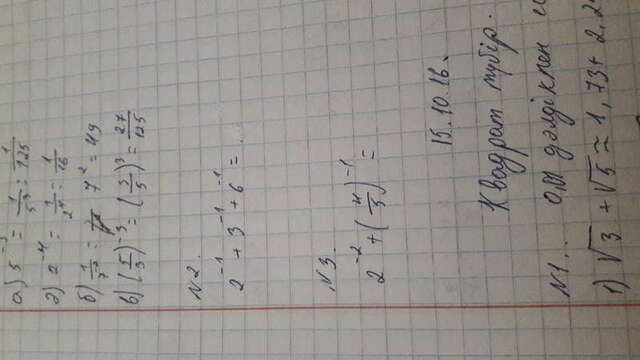 а) 5⁻³ = 1/5³ = 1/125
г) 2⁻⁴ = 1/2⁴ = 1/16
б) 1/7⁻² = 7² = 49
в) (5/3)⁻³ = (3/5)³ = 27/125
№2.
2⁻¹ + 3⁻¹ + 6⁻¹ =
№3.
2⁻² + (4/3)⁻¹ =
15.10.16.
Квадрат түбір.
№1.. 0,01 дәлдікпен
1) √3 + √5 ≈ 1,73 + 2,2